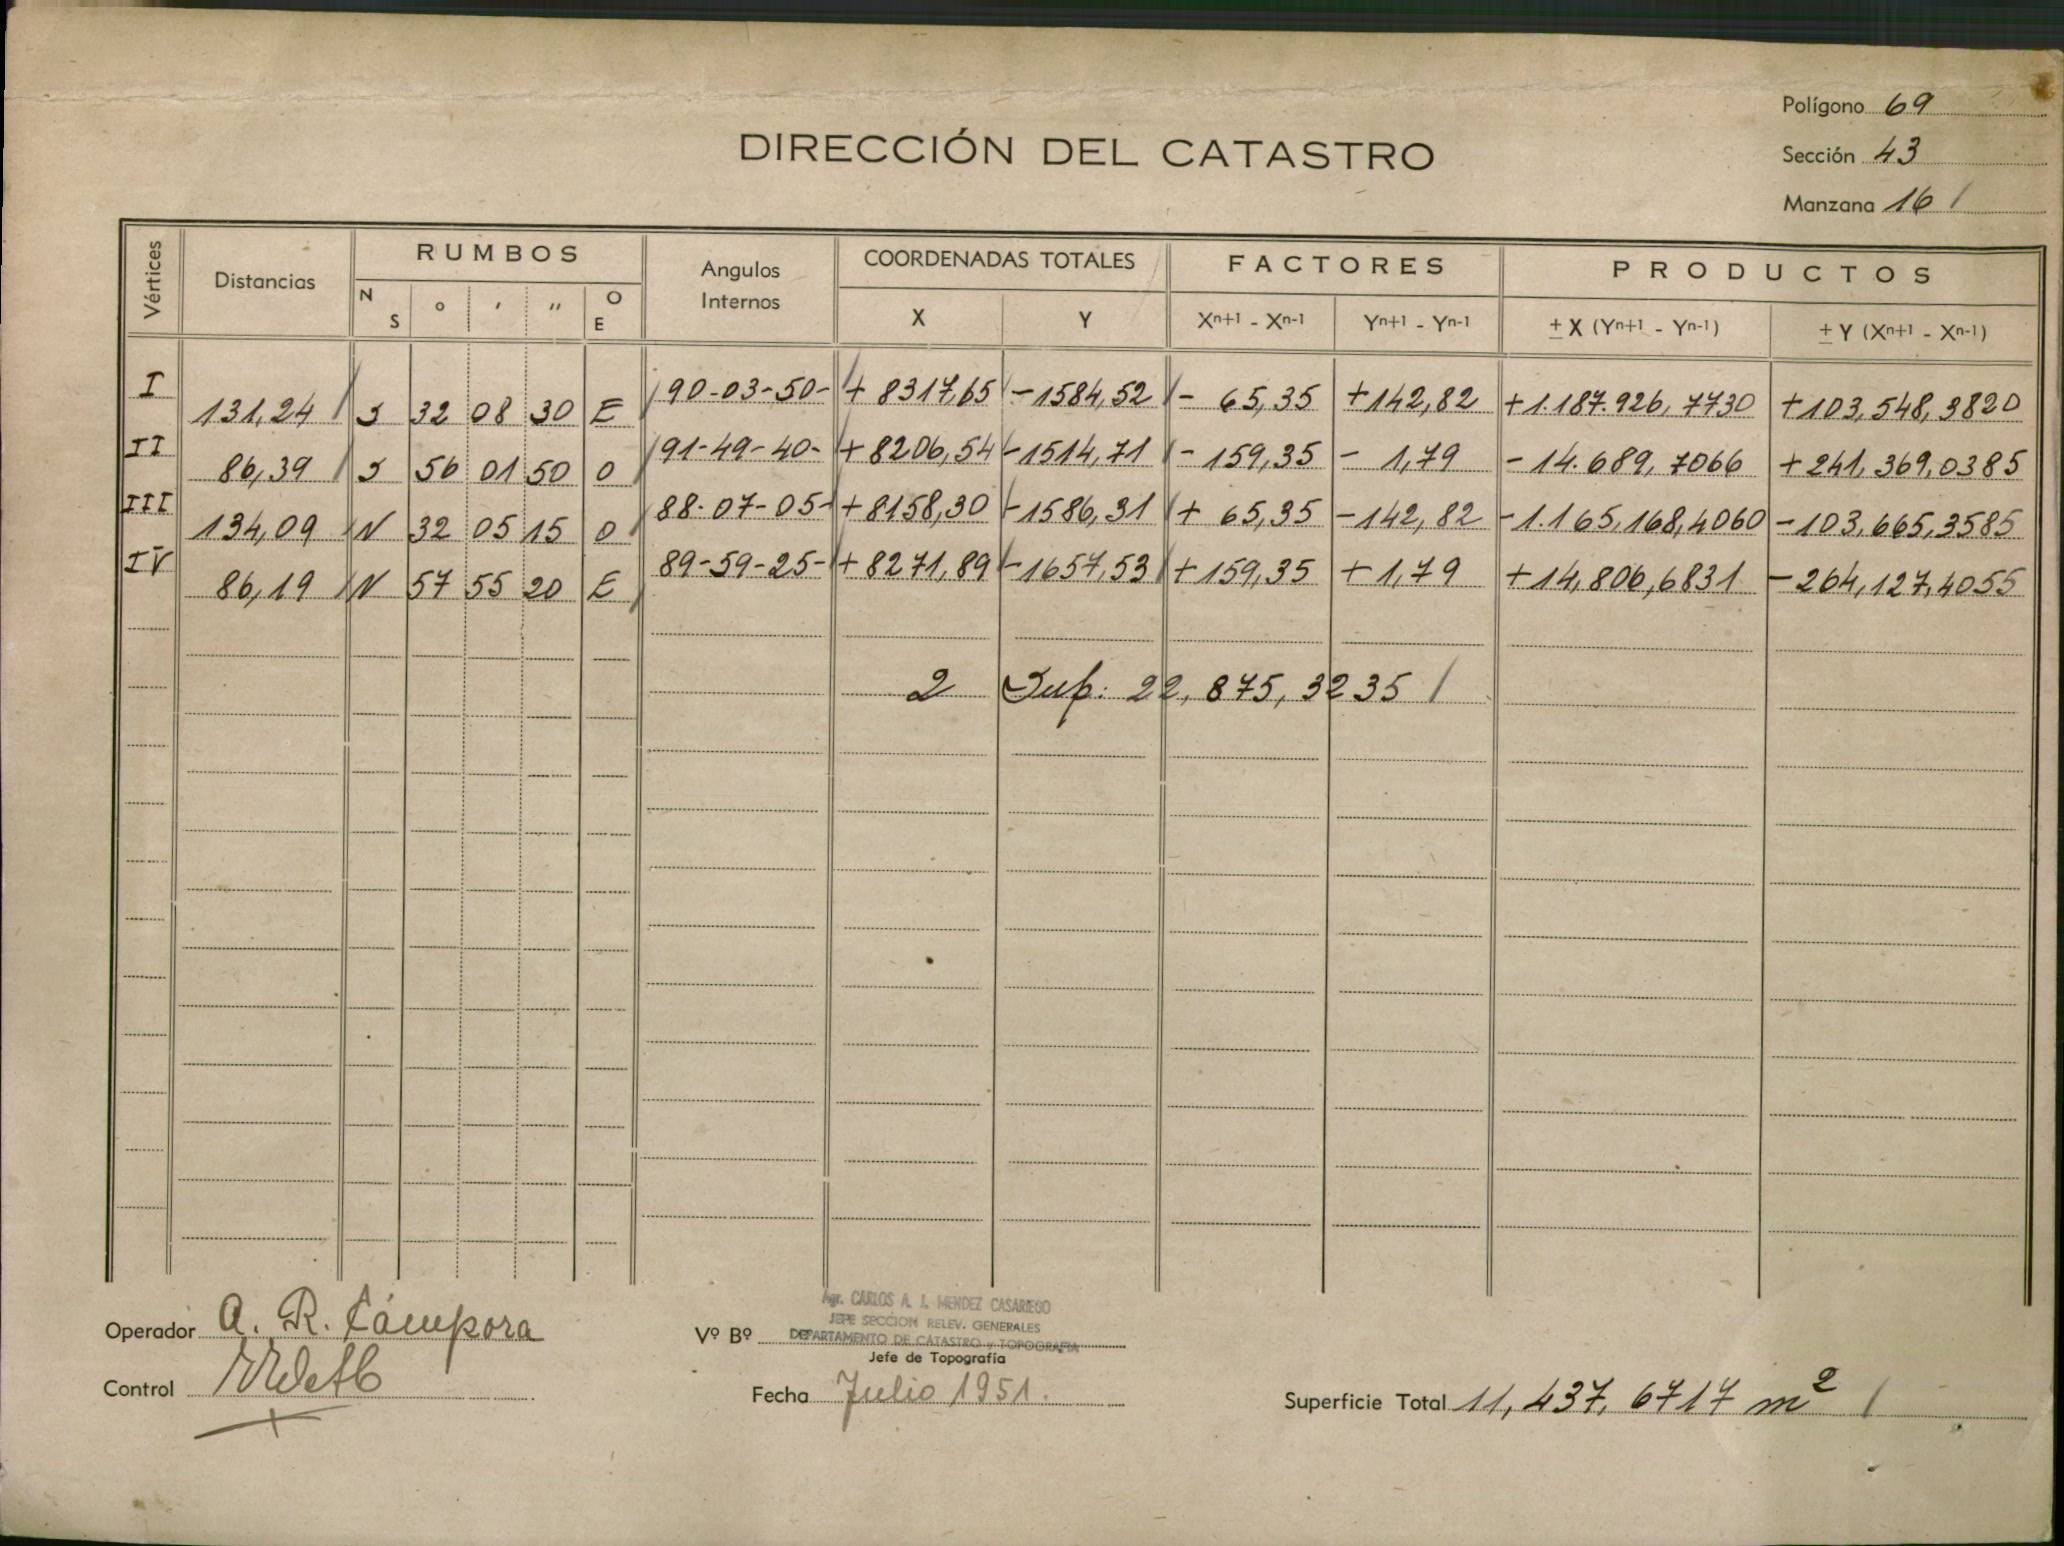 Polígono 69
DIRECCIÓN DEL CATASTRO
Sección 43
Manzana 16 /
Vértices Distancias RUMBOS Angulos Internos COORDENADAS TOTALES FACTORES PRODUCTOS
N S ° ′ ″ O E X Y Xn+1 - Xn-1 Yn+1 - Yn-1 ± X (Yn+1 - Yn-1) ± Y (Xn+1 - Xn-1)
I 131,24 / S 32 08 30 E / 90-03-50- + 8317,65 / -1584,52 / - 65,35 +142,82 +1.187.926,7730 +103,548,3820
II 86,39 / S 56 01 50 O / 91-49-40- +8206,54 / -1514,71 / -159,35 - 1,79 -14.689,7066 +241,369,0385
III 134,09 / N 32 05 15 O / 88-07-05- +8158,30 / -1586,31 / + 65,35 -142,82 -1.165,168,4060 -103,665,3585
IV 86,19 / N 57 55 20 E / 89-59-25- +8271,89 / -1657,53 / +159,35 +1,79 +14,806,6831 -264,127,4055
2 Sup: 22,875,3235 /
Operador A. R. Cámpora
Vº Bº Agr. CARLOS A. J. MENDEZ CASARIEGO
JEFE SECCIÓN RELEV. GENERALES
DEPARTAMENTO DE CATASTRO y TOPOGRAFIA
Jefe de Topografía
Control
Fecha Julio 1951.
Superficie Total 11,437,6717 m2 /